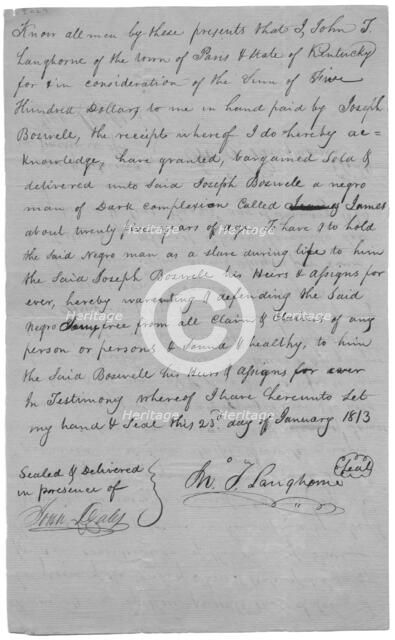 Know all men by these presents that I, John T.
Langhorne of the town of Paris & State of Kentucky
for & in consideration of the Sum of Five
Hundred Dollars to me in hand paid by Joseph
Boswell, the receipts whereof I do hereby ac=
knowledge, have granted, bargained Sold &
delivered unto Said Joseph Boswell a negro
man of Dark complexion Called James
about twenty five years of age. To have & to hold
the Said Negro man as a slave during life to him
the Said Joseph Boswell his Heirs & Assigns for
ever, hereby warenting & defending the Said
Negro free from all Claim & Claims of any
person or persons & Sound & healthy, to him
the Said Boswell his Heirs & Assigns for ever
In Testimony whereof I have hereunto Set
my hand & Seal this 23d day of January 1813
Sealed & Delivered
in presence of
Jno. T. Langhorne
Seal
heritage
Heritage
Heritage
Heritage
Heritage
Heritage
C